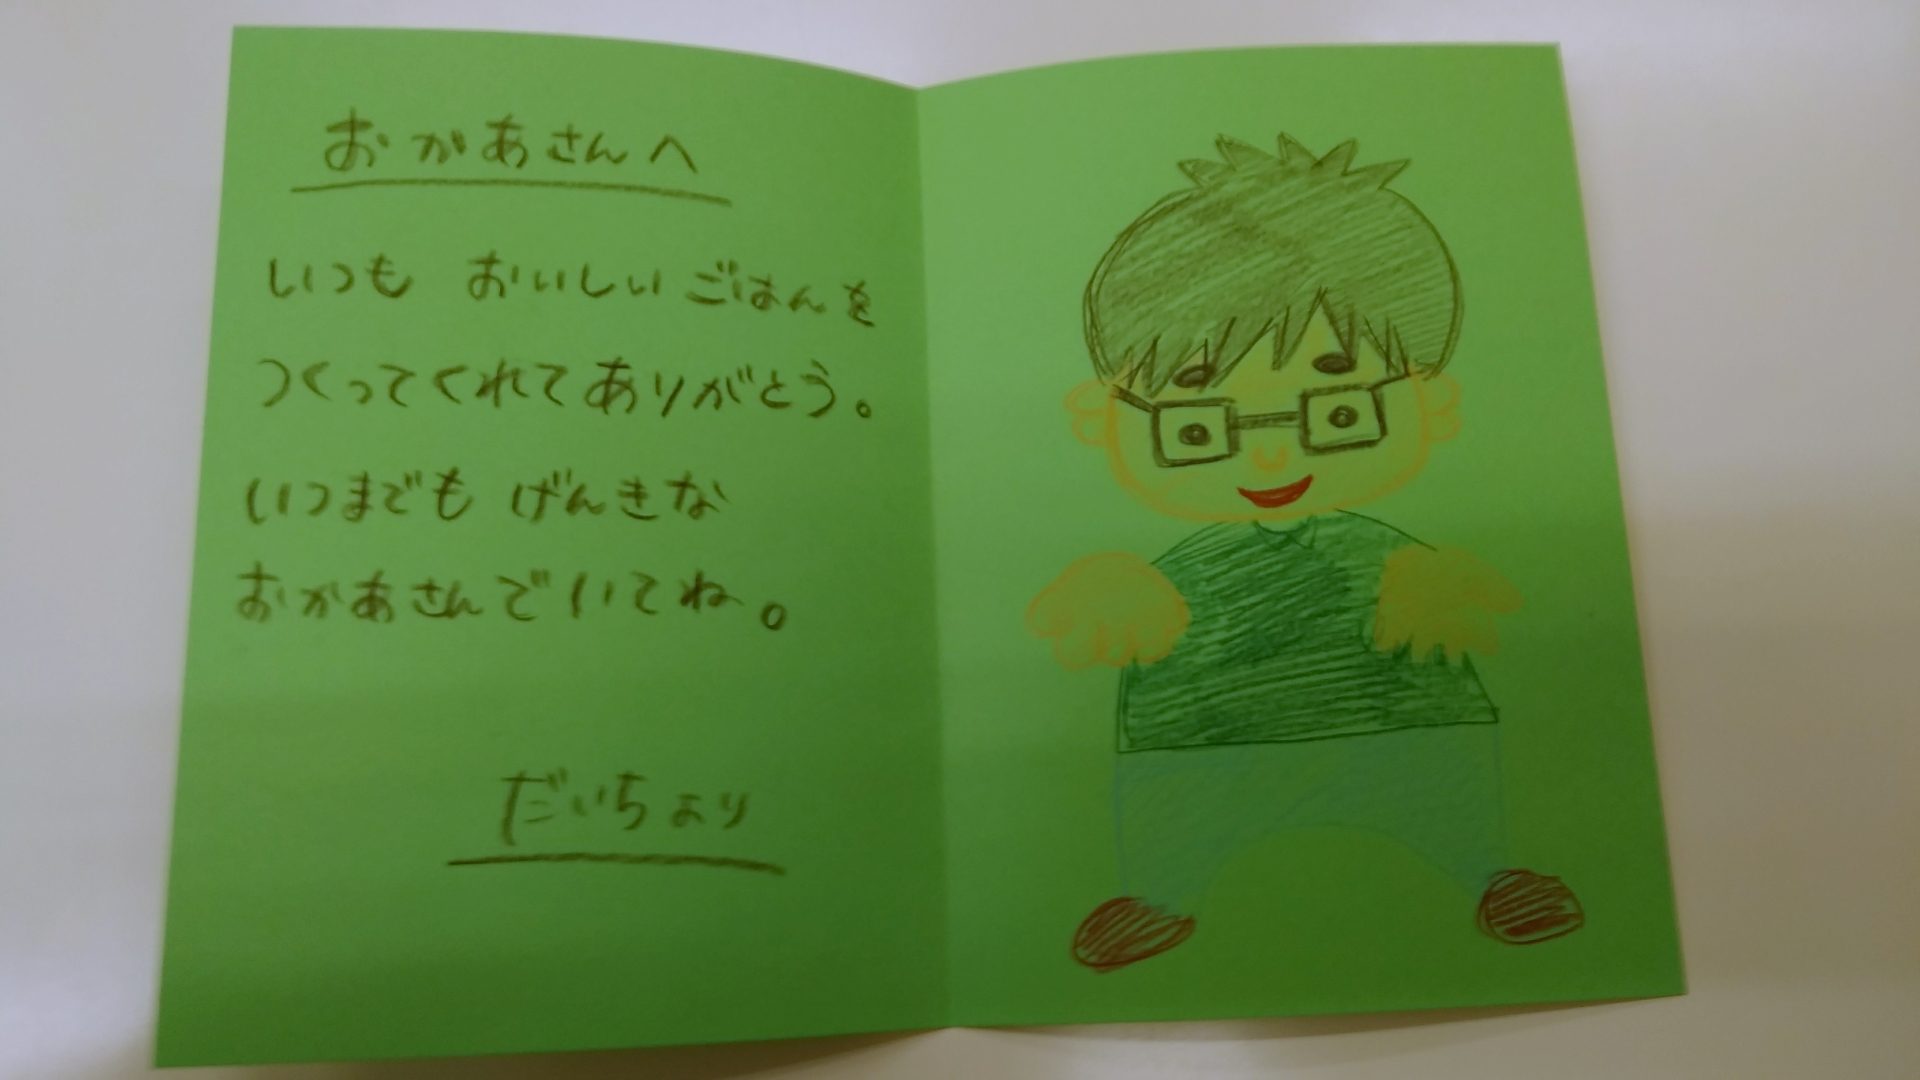 おかあさんへ
いつも おいしいごはんを
つくってくれてありがとう。
いつまでも げんきな
おかあさんでいてね。
だいちより